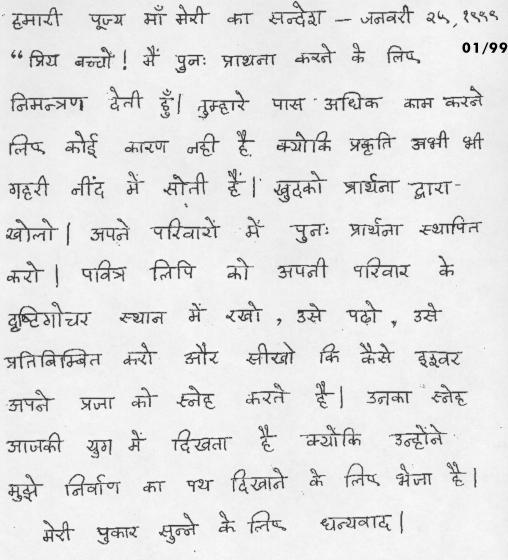 हमारी पूज्य माँ मेरी का सन्देश – जनवरी २५, १९९९
01/99
“प्रिय बच्चों! मैं पुनः प्राथना करने के लिए
निमन्त्रण देती हुँ| तुम्हारे पास अधिक काम करने
लिए कोई कारण नही है क्योकि प्रकृति अभी भी
गहरी नींद में सोती हैं| खुदको प्रार्थना द्वारा-
खोलो| अपने परिवारों में पुनः प्रार्थना स्थापित
करो| पवित्र लिपि को अपनी परिवार के
दृष्टिगोचर स्थान में रखो, उसे पढ़ो, उसे
प्रतिबिम्बित करो और सीखो कि कैसे इश्वर
अपने प्रजा को स्नेह करते है| उनका स्नेह
आजकी युग में दिखता है क्योंकि उन्होंने
मुझे निर्वाण का पथ दिखाने के लिए भेजा है|
मेरी पुकार सुन्ने के लिए धन्यवाद|